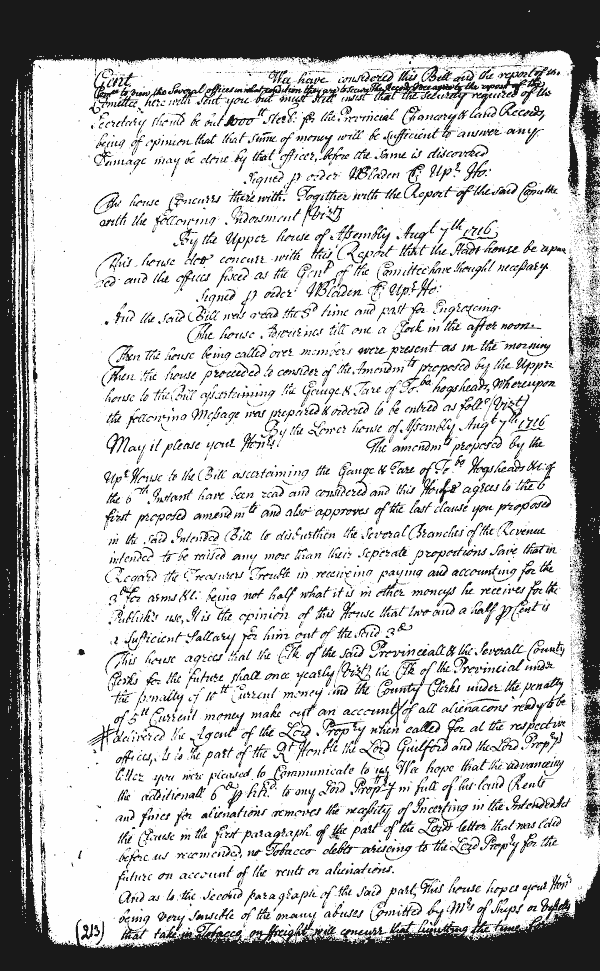 Gent We have considered this Bill and the report of the
to view the Several offices in what condition they are to secure the Records the report of the
Comittee herewith sent you but must still insist that the Security required of the
Secretary should be but 1000 ll Sterl: for the Provincial Chancery & land Records,
being of opinion that that Sume of money will be Sufficient to answer any
Damage may be done by that officer, before the Same is discovered
Signed p order WBladen Cl Upr: Ho:
This house Concurrs therewith. Together with the Report of the said Comittee
with the following Indorsment (Vizt)
By the Upper house of Assembly Augt 7th 1716
This house doth concurr with this Report that the Stadt house be
and the offices fixed as the Gent of the Comittee have thought necessary
Signed p order WBladen Cl Upr Ho:
And the said Bill was read the 3d time and past for Engrossing.
The house Adjournes till one a Clock in the after noon
Then the house being called over members were present as in the morning
Then the house proceeded to consider of the Amendmts proposed by the Upper
house to the Bill ascertaining the Gauge & Tare of Tobo hogsheads, Whereupon
the following Message was prepared & ordered to be entred as follo (Vizt)
By the Lower house of Assembly Augt 7th 1716
May it please your Honrs: The amendmts proposed by the
Upr House to the Bill ascertaining the Gauge & Tare of Tobo Hogsheads &c: of
the 6th Instant have been read and considered and this House agrees to the 6
first proposed amendmts and also approves of the last clause you proposed
in the said Intended Bill to disburthen the Several Branches of the Revenue
intended to be raised any more than their Seperate proportions Save that in
Regard the Treasurers Trouble in receiveing paying and accounting for the
3d for arms &c: being not half what it is in other moneys he receives for the
Publick's use, It is the opinion of this House that two and a half p Cent is
a Sufficient Sallary for him out of the Said 3d
This house agrees that the Clk of the said Provinciall & the Severall County
Clerks for the future shall once yearly (Vizt) the Clk of the Provincial under
the penalty of 10ll Current money and the County Clerks under the penalty
of 5ll Current money make out an account of all alienacons ready to be
delivered the Agent of the Lord Propry when called for at the respective
offices, As to the part of the Rt Honble the Lord Guilford and the Lord Proprys
letter you were pleased to Communicate to us, We hope that the advanceing
the additionall 6d p hhd. to my Lord Propry in full of his land Rents
and fines for alienations removes the necessity of Incerting in the Intended Act
the Clause in the first paragraph of the part of the Lords letter that was laid
before us recomended, no Tobacco debts ariseing to the Lord Propry for the
future on account of the rents or alienations.
And as to the Second paragraph of the said part, This house hopes your Honrs
being very Sensible of the many abuses Comitted by Mrs of Ships or Vessells
that take in Tobacco on freight will concurr that limitting the time
(213)